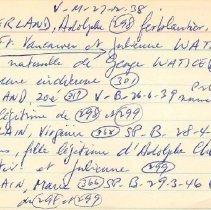 V-M-27-12-38.
ERLAND, Adolphe (298) ferblantier,
Ft. Vancouver et Julienne WAT
naturelle de George WATIER
mère indienne (301)
LAND, Zoe (311) V-B-26-6-39
légitime de (298) et (299)
AIN, Virginie (362) SP. B-28-4
, fille légitime d'Adolphe Ch
et Julienne (299)
AIN, Marie (366) SP. B-29-3-46
de 298 et 299